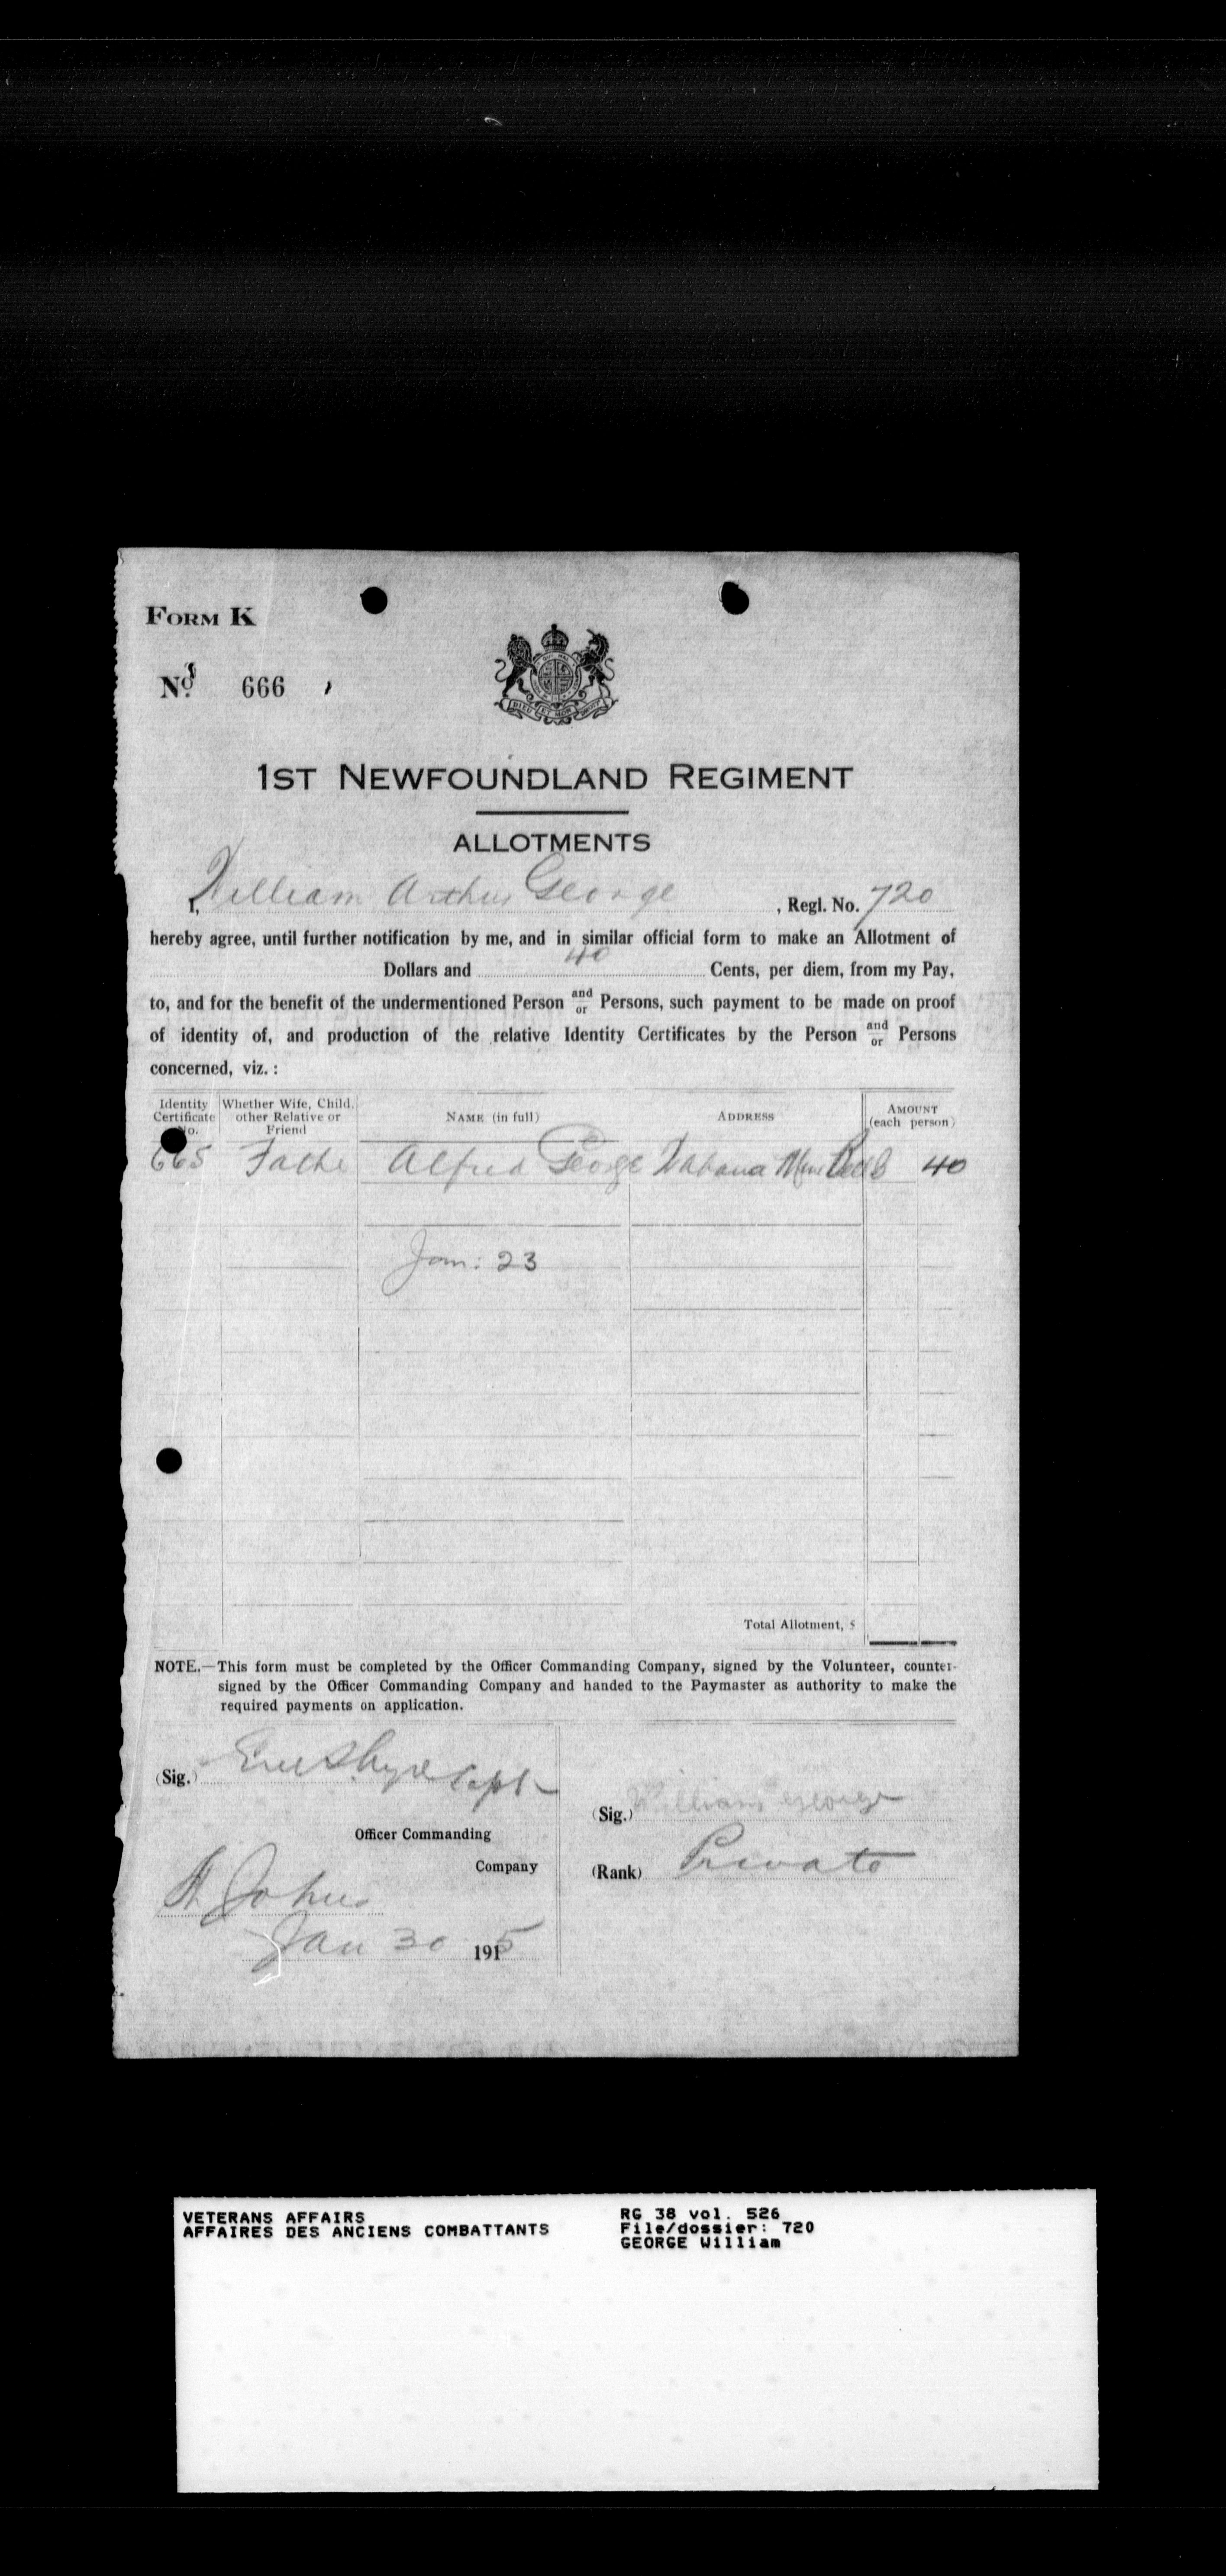 FORM K
No. 666
DIEU ET MON DROIT
1ST NEWFOUNDLAND REGIMENT
ALLOTMENTS
I, William Arthur George, Regl. No. 720
hereby agree, until further notification by me, and in similar official form to make an Allotment of
Dollars and 40 Cents, per diem, from my Pay,
to, and for the benefit of the undermentioned Person and/or Persons, such payment to be made on proof
of identity of, and production of the relative Identity Certificates by the Person and/or Persons
concerned, viz. :
Identity Certificate No. Whether Wife, Child, other Relative or Friend NAME (in full) ADDRESS AMOUNT (each person)
665 Father Alfred George Wabana Mines Bell 40
Jan: 23
Total Allotment, $
NOTE.—This form must be completed by the Officer Commanding Company, signed by the Volunteer, counter-
signed by the Officer Commanding Company and handed to the Paymaster as authority to make the
required payments on application.
(Sig.) Capt
(Sig.) William George
Officer Commanding
Company
(Rank) Private
St Johns
Jan 30 1915
VETERANS AFFAIRS
AFFAIRES DES ANCIENS COMBATTANTS
RG 38 vol. 526
File/dossier: 720
GEORGE William